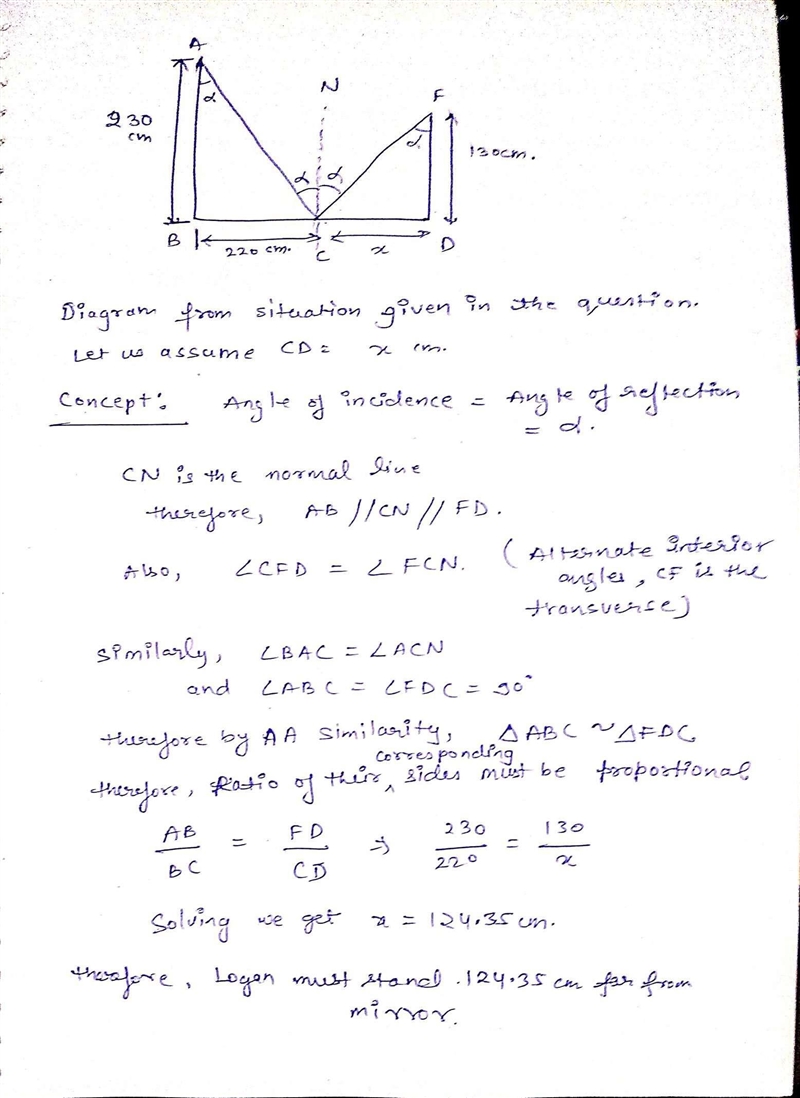 A
N
F
α
230
cm
α
α
α
130cm.
B
220 cm.
C
x
D
Diagram from situation given in the question.
Let us assume CD = x cm.
Concept: Angle of incidence = Angle of reflection
= α.
CN is the normal line
therefore, AB // CN // FD.
Also, ∠CFD = ∠FCN. (Alternate interior
angles, CF is the
transverse)
Similarly, ∠BAC = ∠ACN
and ∠ABC = ∠FDC = 90°
therefore by AA similarity, △ABC ~ △FDC
corresponding
therefore, Ratio of their ‸ sides must be proportional
AB/BC = FD/CD ⇒ 230/220 = 130/x
Solving we get x = 124.35 cm.
therefore, Logan must stand 124.35 cm far from
mirror.